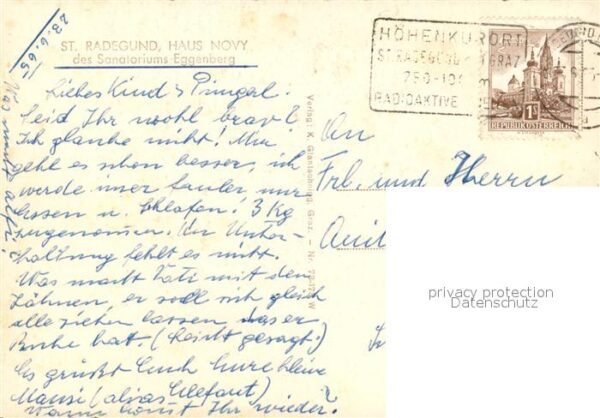 23.6.65
ST. RADEGUND, HAUS NOVY
des Sanatoriums Eggenberg
Liebes Kind & Pingal!
Seid Ihr wohl brav?
Ich glaube nicht! Mir
geht es schon besser, ich
werde immer fauler nur
Essen u. Schlafen! 3 Kg
zugenommen. An Unter-
haltung fehlt es nicht.
Was macht Vati mit den
Zähnen, er soll sich gleich
alle ziehen lassen, das er
Ruhe hat. (Leicht gesagt.)
Es grüßt Euch Eure kleine
Mausi (alias Elefant)
Wann kommt Ihr wieder?
Verlag: K. Graz. – Nr.
HÖHENKURORT
ST. RADEGUND GRAZ
750-
RADIOAKTIVE
1S
REPUBLIK ÖSTERREICH
An
Frl. und Herrn
privacy protection
Datenschutz